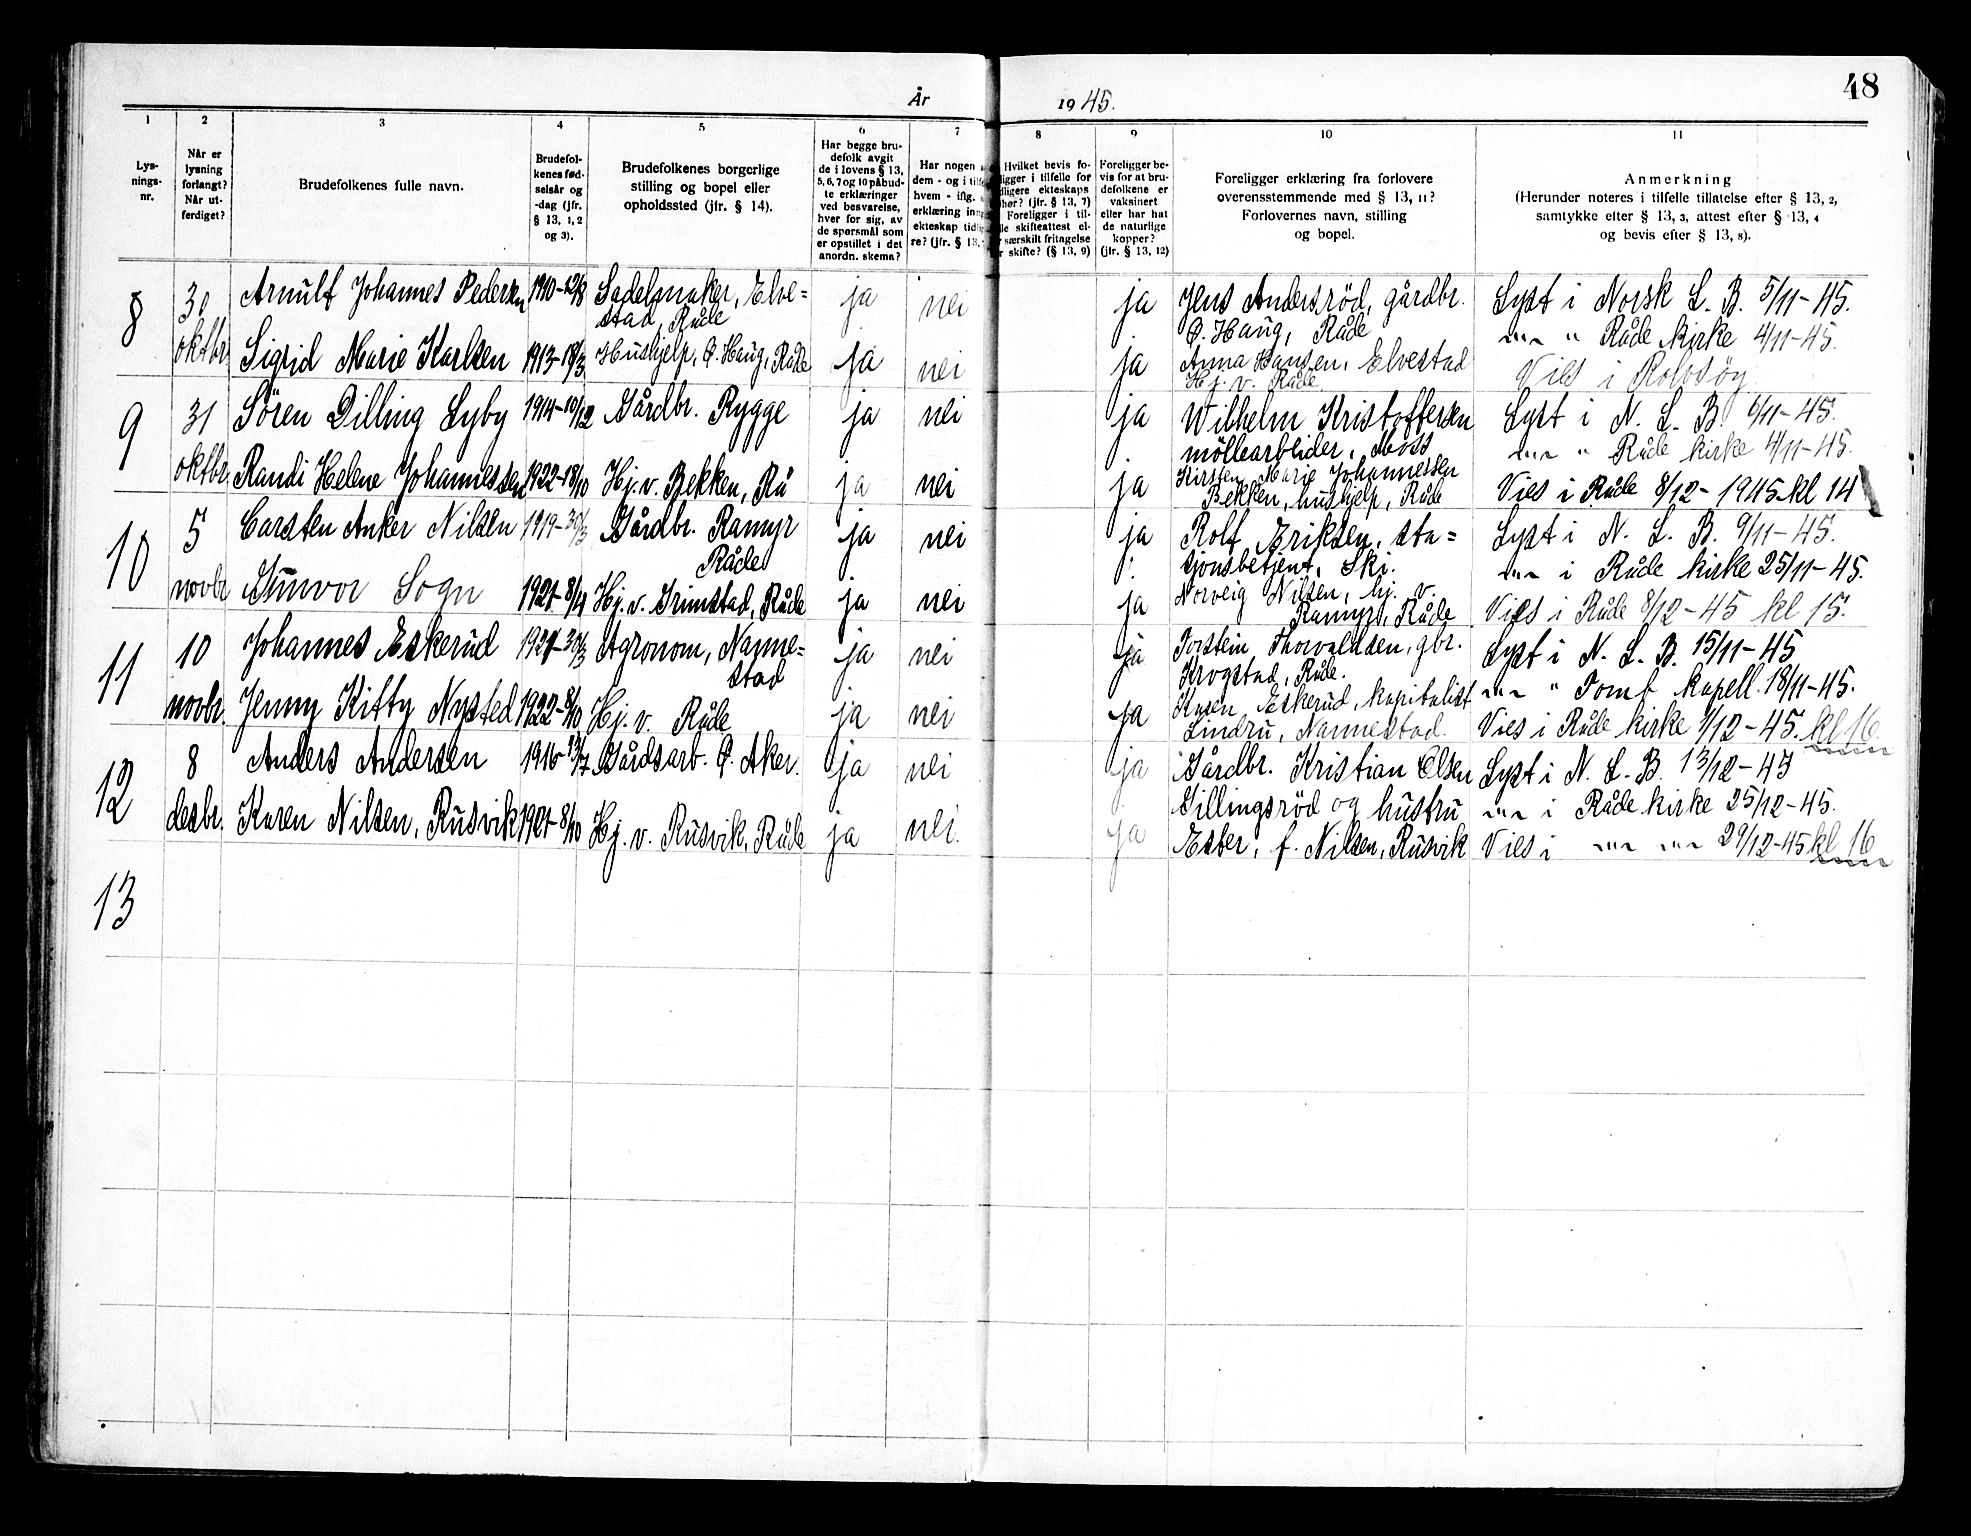 48
År 1945.
1 2 3 4 5 6 7 8 9 10 11
Lys-
nings-
nr.
Når er
lysning
forlangt?
Når ut-
ferdiget?
Brudefolkenes fulle navn.
Brudefol-
kenes fød-
selsår og
-dag (jfr.
§ 13, 1, 2
og 3).
Brudefolkenes borgerlige
stilling og bopel eller
opholdssted (jfr. § 14).
Har begge bru-
defolk avgit
de i lovens § 13,
5, 6, 7 og 10 påbud-
te erklæringer
ved besvarelse,
hver for sig, av
de spørsmål som
er opstillet i det
anordn. skema?
Har nogen
dem - og i tilfe
hvem - iflg.
erklæring inng
ekteskap tidlig
re? (jfr. § 13,
Hvilket bevis fo-
ligger i tilfelle for
dligere ekteskaps
hør? (jfr. § 13, 7)
Foreligger i til-
le skifteattest el-
særskilt fritagelse
r skifte? (§ 13, 9)
Foreligger be-
vis for at bru-
defolkene er
vaksinert
eller har hat
de naturlige
kopper?
(jfr. § 13, 12)
Foreligger erklæring fra forlovere
overensstemmende med § 13, 11?
Forlovernes navn, stilling
og bopel.
Anmerkning
(Herunder noteres i tilfelle tillatelse efter § 13, 2,
samtykke efter § 13, 3, attest efter § 13, 4
og bevis efter § 13, 8).
8 30 Arnulf Johannes Pedersen 1910-12/8 Sadelmaker, Elve= ja nei ja Jens Andersröd, gårdbr. Lyst i Norsk L. B. 5/11-45.
stad, Råde Ø. Haug, Råde -"- " Råde kirke 4/11-45.
oktbr Sigrid Marie Karlsen 1913-18/3 Hushjelp, Ø. Haug, Råde ja nei ja Anna Hansen, Elvestad
Hj. v. Råde Vies i Rolvsøy
9 31 Sören Dilling Lyby 1914-10/12 Gårdbr. Rygge ja nei ja Wilhelm Kristoffersen Lyst i N. L. B. 6/11-45.
möllearbeider, Moss -"- " Råde kirke 4/11-45.
oktbr. Randi Helene Johannessen 1922-18/10 Hj. v. Bekken, Rå ja nei ja Kirsten Marie Johannessen
Bekken, hushjelp, Råde Vies i Råde 8/12-1945-kl 14
10 5 Carsten Anker Nilsen 1919-30/3 Gårdbr. Ramyr ja nei ja Rolf Eriksen, sta= Lyst i N. L. B. 9/11-45.
Råde sjonsbetjent, Ski. -"- i Råde kirke 25/11-45.
novbr Gunvor Sogn 1921-8/4 Hj. v. Grimstad, Råde ja nei ja Norveig Nilsen, hj. v.
Ramyr, Råde Vies i Råde 8/12-45 kl 15.
11 10 Johannes Eskerud 1921-30/3 Agronom, Nanne= ja nei ja Torstein Thorvaldsen, gbr. Lyst i N. L. B. 15/11-45
stad Krogstad, Råde. -"- " Tomb kapell. 18/11-45.
novbr. Jenny Kitty Nysted 1922-8/10 Hj. v. Råde ja nei ja Karen Eskerud, kapitalist
Lindru, Nannestad. Vies i Råde kirke 1/12-45. kl 16.
12 8 Anders Andersen 1916-23/7 Gårdsarb. Ø. Aker. ja nei ja Gårdbr. Kristian Olsen Lyst i N. L. B. 13/12-45
Gillingsröd og hustru -"- i Råde kirke 25/12-45.
desbr. Karen Nilsen, Rusvik 1921-8/10 Hj. v. Rusvik, Råde ja nei. ja Ester, f. Nilsen, Rusvik Vies i -"- -"- 29/12-45 kl 16
13